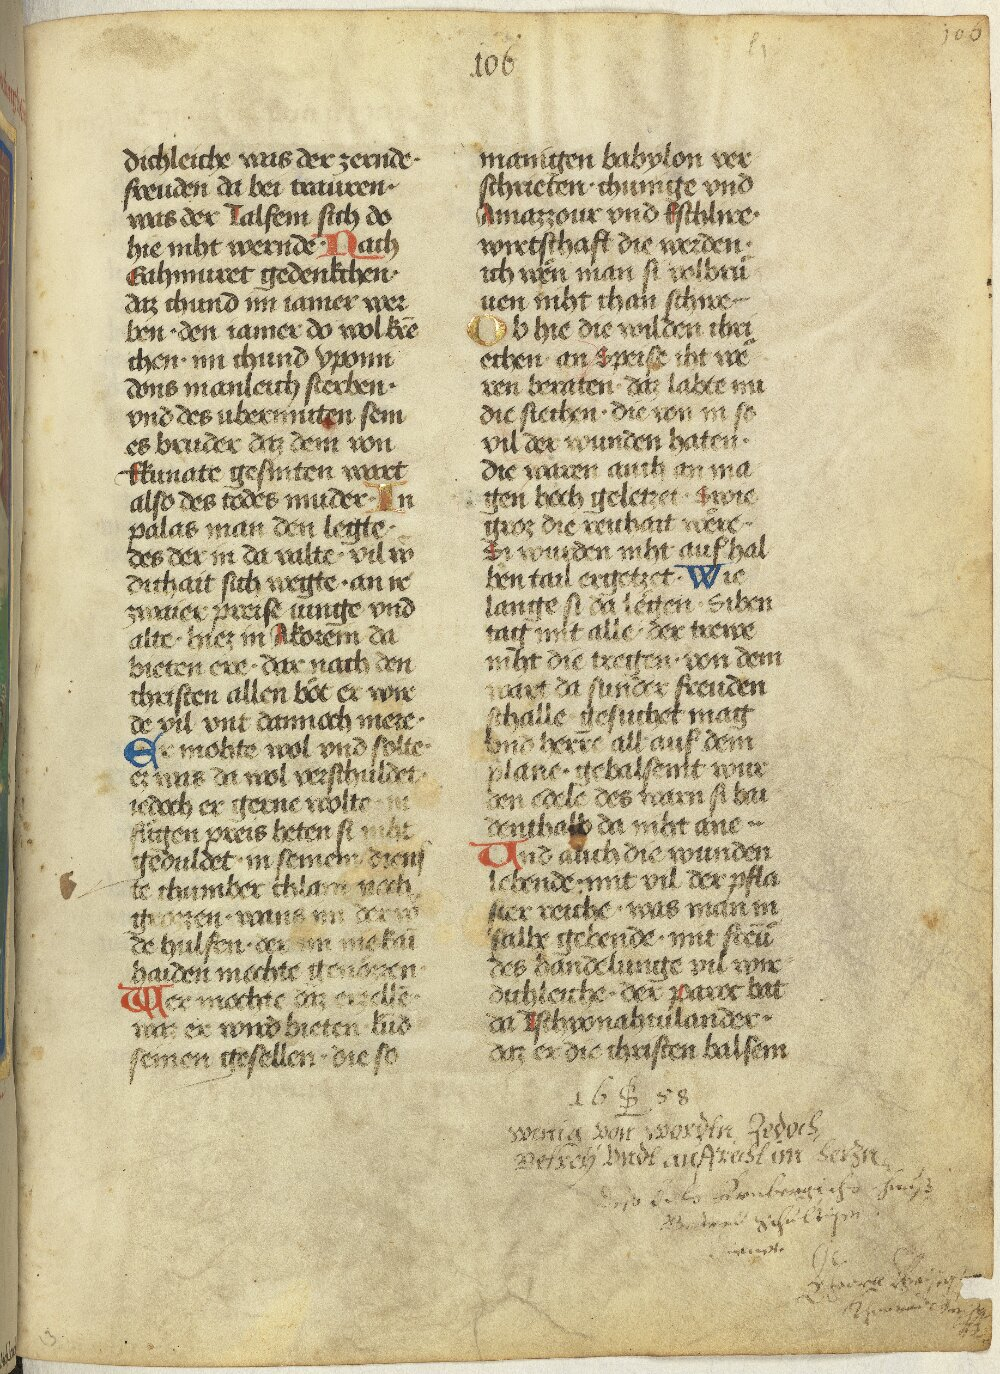 106
106
dichleiche was der zernde·
freuden da bei trauren·
was der Talfein sich do
hie niht wernde· Nach
Gahmuret gedenkchen·
daz chund im iamer wer
ben· den iamer do wol kre
chen· im chund vponn
dons manleich sterben·
vnd des ubermuten sein
es bruder daz dem von
Ekunate gesniten wart
also des todes muder· In
palas man den legte·
des der in da valte· vil w
dichait sich wegte· an re
zwaier preise iunge vnd
alte· hiez in Akorein da
bieten ere· dar nach den
christen allen bot er wir
de vil vnt dannoch mere·
Er mohte wol vnd solte·
er was da wol verschuldet·
iedoch er gerne wolte· in
fugen preis heten si niht
geduldet· in seinem diens
te chumber chlain noch
grozzen· wans im der w
de hulfen· der im nie kain
haiden mochte genozzen·
Wer mochte daz erzelle·
waz er wird bieten kud
seinen gesellen· die so
manigen babylon ver
schrieten· chunige vnd
Amazzour vnd Eschlire·
wirtschaft die werden·
ich wen man si volbru
uen niht chan schire
Ob hie die wilden chri
echen· an Speise iht we
ren beraten· daz labte nu
die siechen· die von in so
vil der wunden haten·
die waren auch an ma
gen hoch geletzet· Swie
groz die reuhait were·
Si wurden niht auf hal
ben tail ergetzet· Wie
lange si da legen· Siben
tag mit alle· der trewe
niht die tregen· von dem
wart da sunder freuden
schalle· gesuchet mag
vnd herre all auf dem
plane· gebalsemt wur
den edele des warn si bai
denthalb da niht ane
Und auch die wunden
lebende· mit vil der pfla
ster reiche· was man in
salbe gebende· mit freu
des handelunge vil wir
dichleiche· der paroc bat
da Tschionahtulander·
daz er die christen balsem
16 58
wenig von worden Jedoch